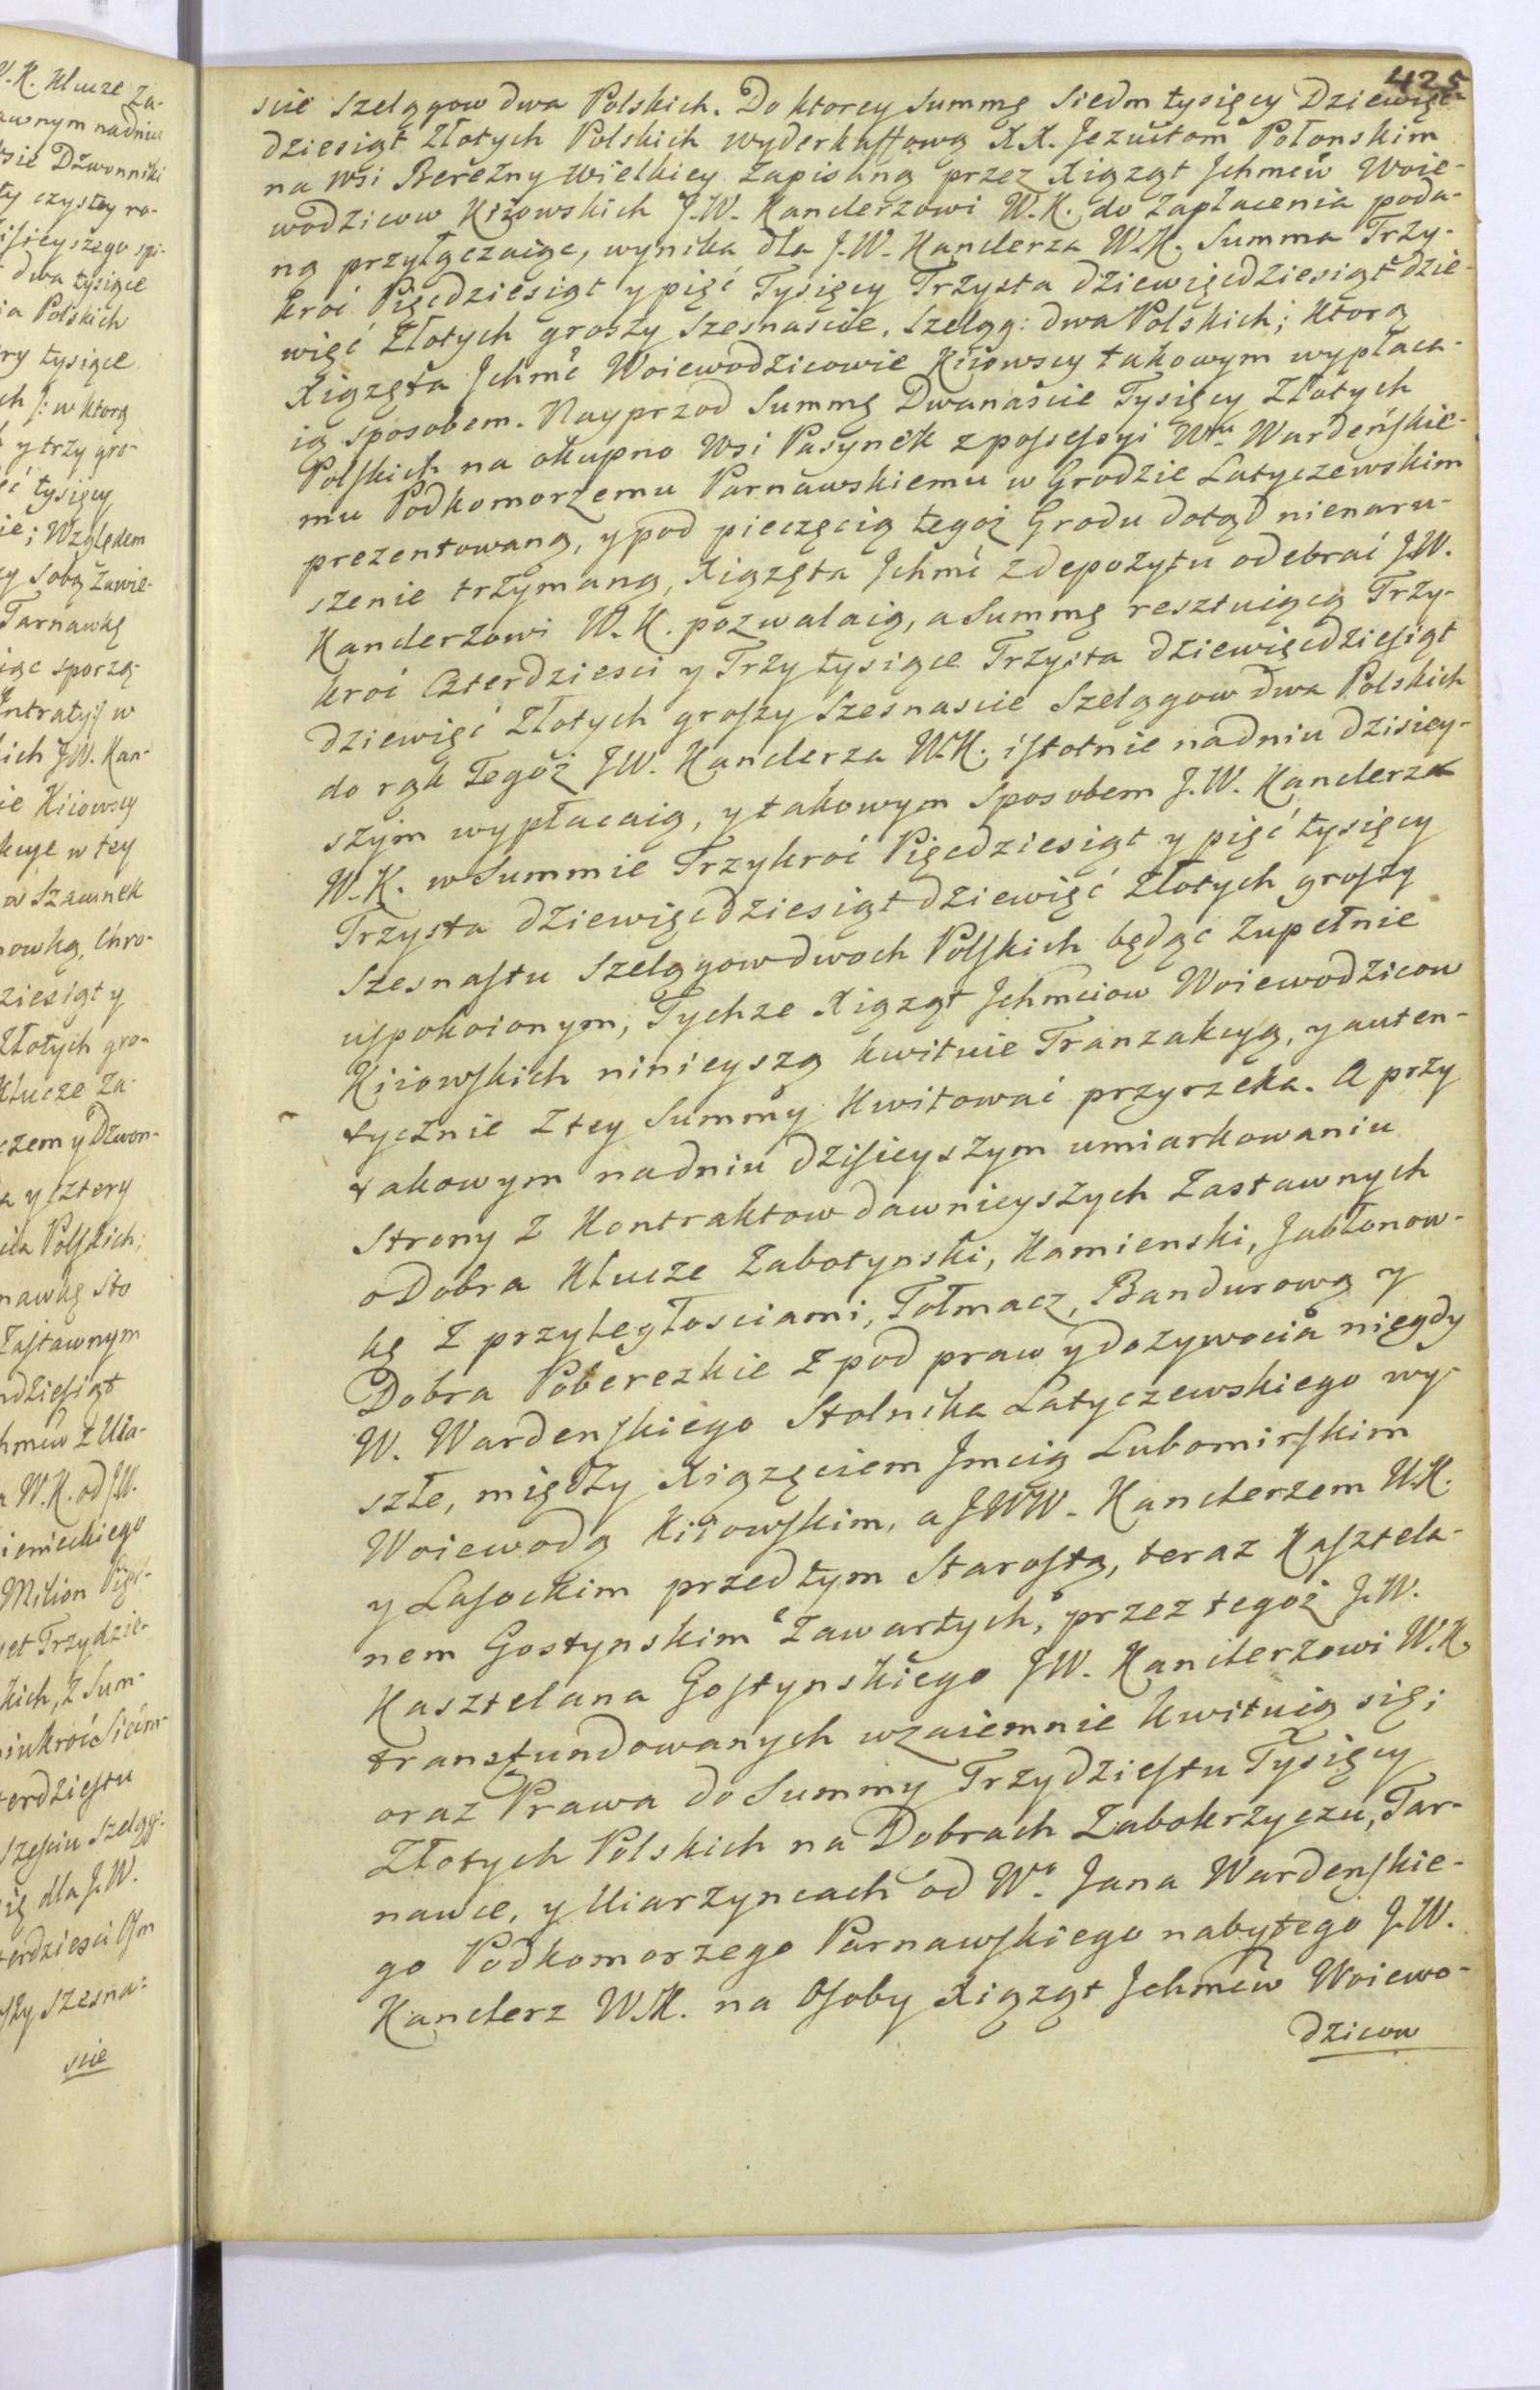 425
scie Szelągow dwa Polskich. Do ktorey Summę Siedm tysięcy Dziewięć-
dziesiąt Złotych Polskich wyderkaffową XX. Jezuitom Połonskim
na wsi Berezny Wielkiey zapisaną przez Xiążąt Jchmciów Woie-
wodzicow Kiiowskich J.W. Kanclerzowi W.K. do zapłacenia poda-
ną przyłączaiąc, wynika dla J.W. Kanclerza W.K. Summa Trzy-
kroć Pięcdziesiąt y pięć Tysięcy Trzysta dziewięcdziesiąt dzie-
więć Złotych groszy Szesnascie, Szeląg: dwa Polskich; ktorą
Xiążęta Jchmć Woiewodzicowie Kiiowscy takowym wypłaca-
ią sposobem. Nayprzod Summę Dwanaście Tysięcy Złotych
Polskich na okupno wsi Pasynek z possessyi Wmu Wardeńskie-
mu Podkomorzemu Parnawskiemu w Grodzie Latyczewskim
prezentowaną, y pod pieczęcią tegoż Grodu dotąd nienaru-
szenie trzymaną, Xiążęta Jchmć z depozytu odebrać J.W.
Kanclerzowi W.K. pozwalaią, a Summę resztuiącą Trzy-
kroć Czterdziesci y Trzy tysiące Trzysta dziewięcdziesiąt
dziewięć Złotych groszy Szesnascie Szelągow dwa Polskich
do rąk Tegoż JW. Kanclerza W.K. istotnie na dniu dzisiey-
szym wypłacaią, y takowym sposobem J.W. Kanclerz
W.K. w Summie Trzykroć Pięcdziesiąt y pięć tysięcy
Trzysta dziewięcdziesiąt dziewięć Złotych groszy
Szesnastu Szelągow dwoch Polskich będąc zupełnie
uspokoionym, Tychze Xiążąt Jchmciow Woiewodzicow
Kiiowskich ninieyszą kwituie Tranzakcyą, y auten-
tycznie z tey Summy kwitować przyrzeka. A przy
takowym na dniu dzisieyszym umiarkowaniu
Strony z Kontraktow dawnieyszych Zastawnych
o Dobra Klucze Zabotynski, Kamienski, Jabłonow-
kę z przyległosciami, Tołmacz, Bandurową y
Dobra Poberezkie z pod praw y dożywocia niegdy
W. Wardenskiego Stolnika Latyczewskiego wy-
szłe, między Xiążęciem Jmcią Lubomirskim
Woiewodą Kiiowskim, a JWW. Kanclerzem W.K.
y Lasockim przedtym Starostą, teraz Kasztela-
nem Gostynskim zawartych, przez tegoż J.W.
Kasztelana Gostynskiego JW. Kanclerzowi W.K.
transfundowanych wzaiemnie kwituią się;
oraz Prawa do Summy Trzydziestu Tysięcy
Złotych Polskich na Dobrach Zabokrzyczu, Tar-
nawce, y Uiarzyncach od Wo Jana Wardenskie-
go Podkomorzego Parnawskiego nabytego J.W.
Kanclerz W.K. na Osoby Xiążąt Jchmciów Woiewo-
dzicow